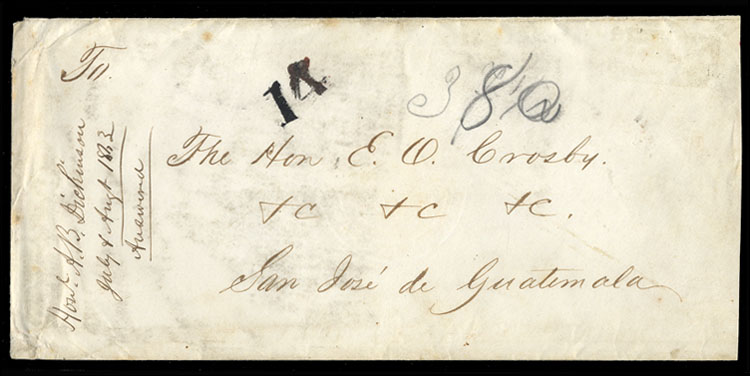 To.
14
The Hon. E. O. Crosby.
&C &C &C.
San José de Guatemala
Honl. A. B. Dickinson
July & Augt 1863
Answered